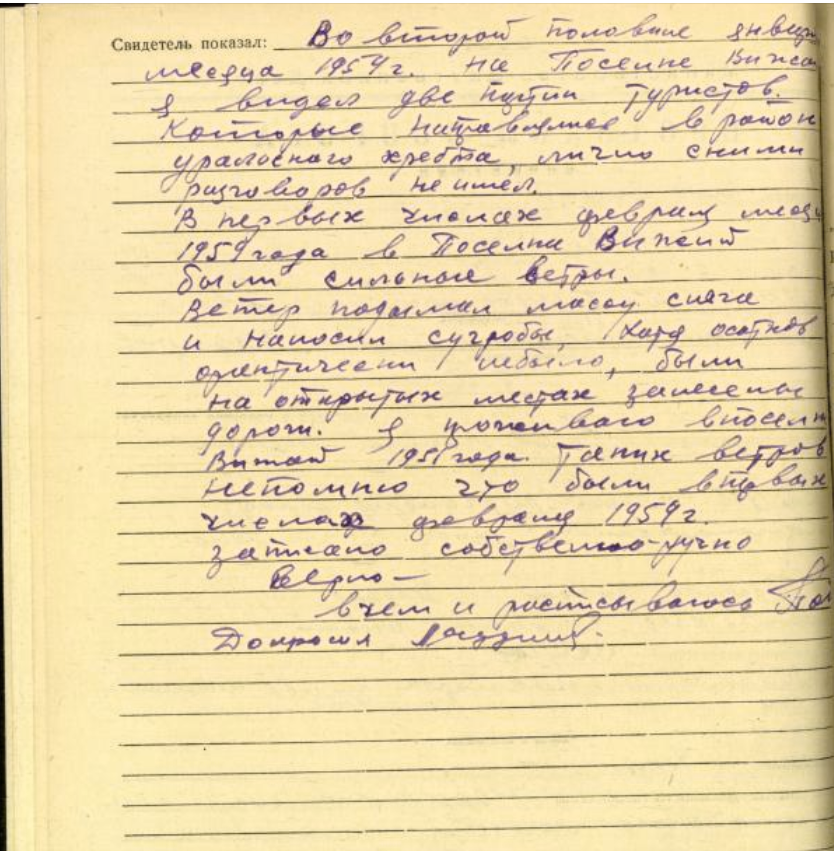 Свидетель показал: Во второй половине январ
месяца 1959 г. на Поселке Вижа
я видел две групы туристов.
Которые направлялись в район
уральского хребта, лично сними
разговоров не имел.
В первых числах февраля меся
1959 года в Поселке Вижай
были сильные ветры.
Ветер подымал массу снега
и наносил сугробы, хотя осатков
практически небыло, были
на открытых местах занесены
дороги. Я проживаю впоселк
Вижай 1951 года. Таких ветров
непомню что были впервых
числах февраля 1959 г.
записано собственно-ручно
верно —
вчем и расписываюсь
Допросил